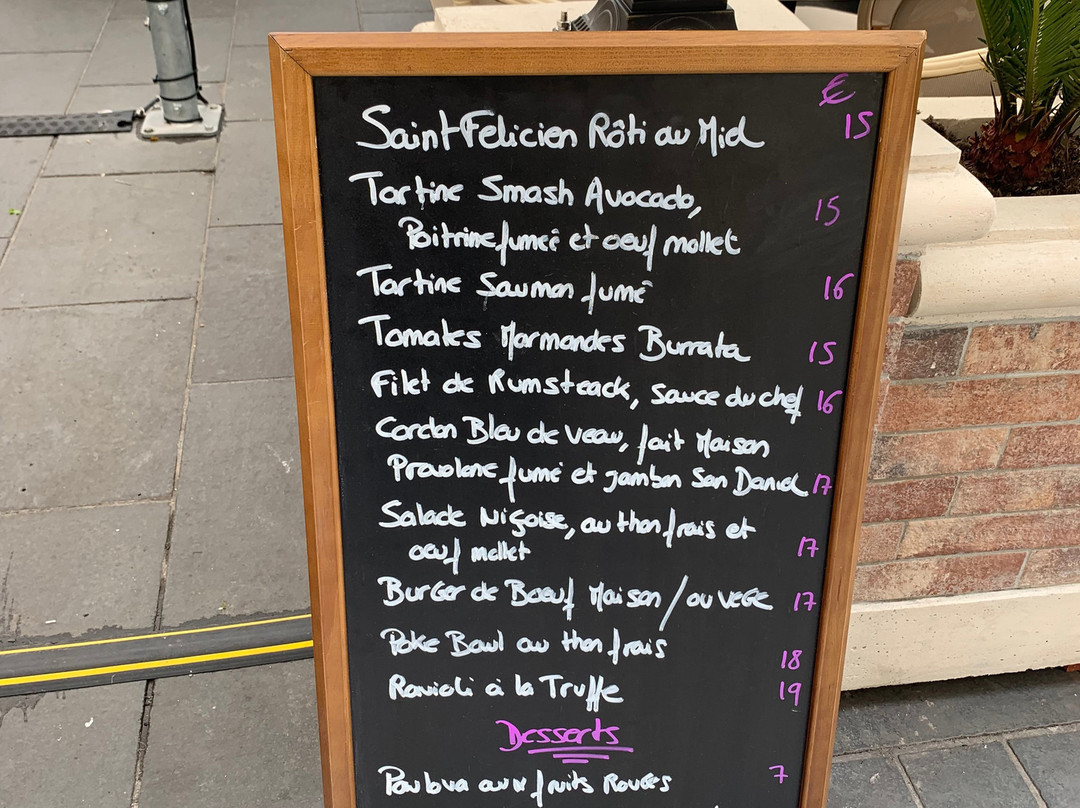 €
Saint Felicien Rôti au Miel 15
Tartine Smash Avocado,
Poitrine fumée et oeuf mollet 15
Tartine Saumon fumé 16
Tomates Marmandes Burrata 15
Filet de Rumsteack, sauce du chef 16
Cordon Bleu de veau, fait Maison
Provolone fumé et jambon San Daniel 17
Salade Niçoise, au thon frais et
oeuf mollet 17
Burger de Boeuf Maison / ou VEGE 17
Poke Bowl au thon frais 18
Ravioli à la Truffe 19
Desserts
Pavlova aux fruits Rouges 7